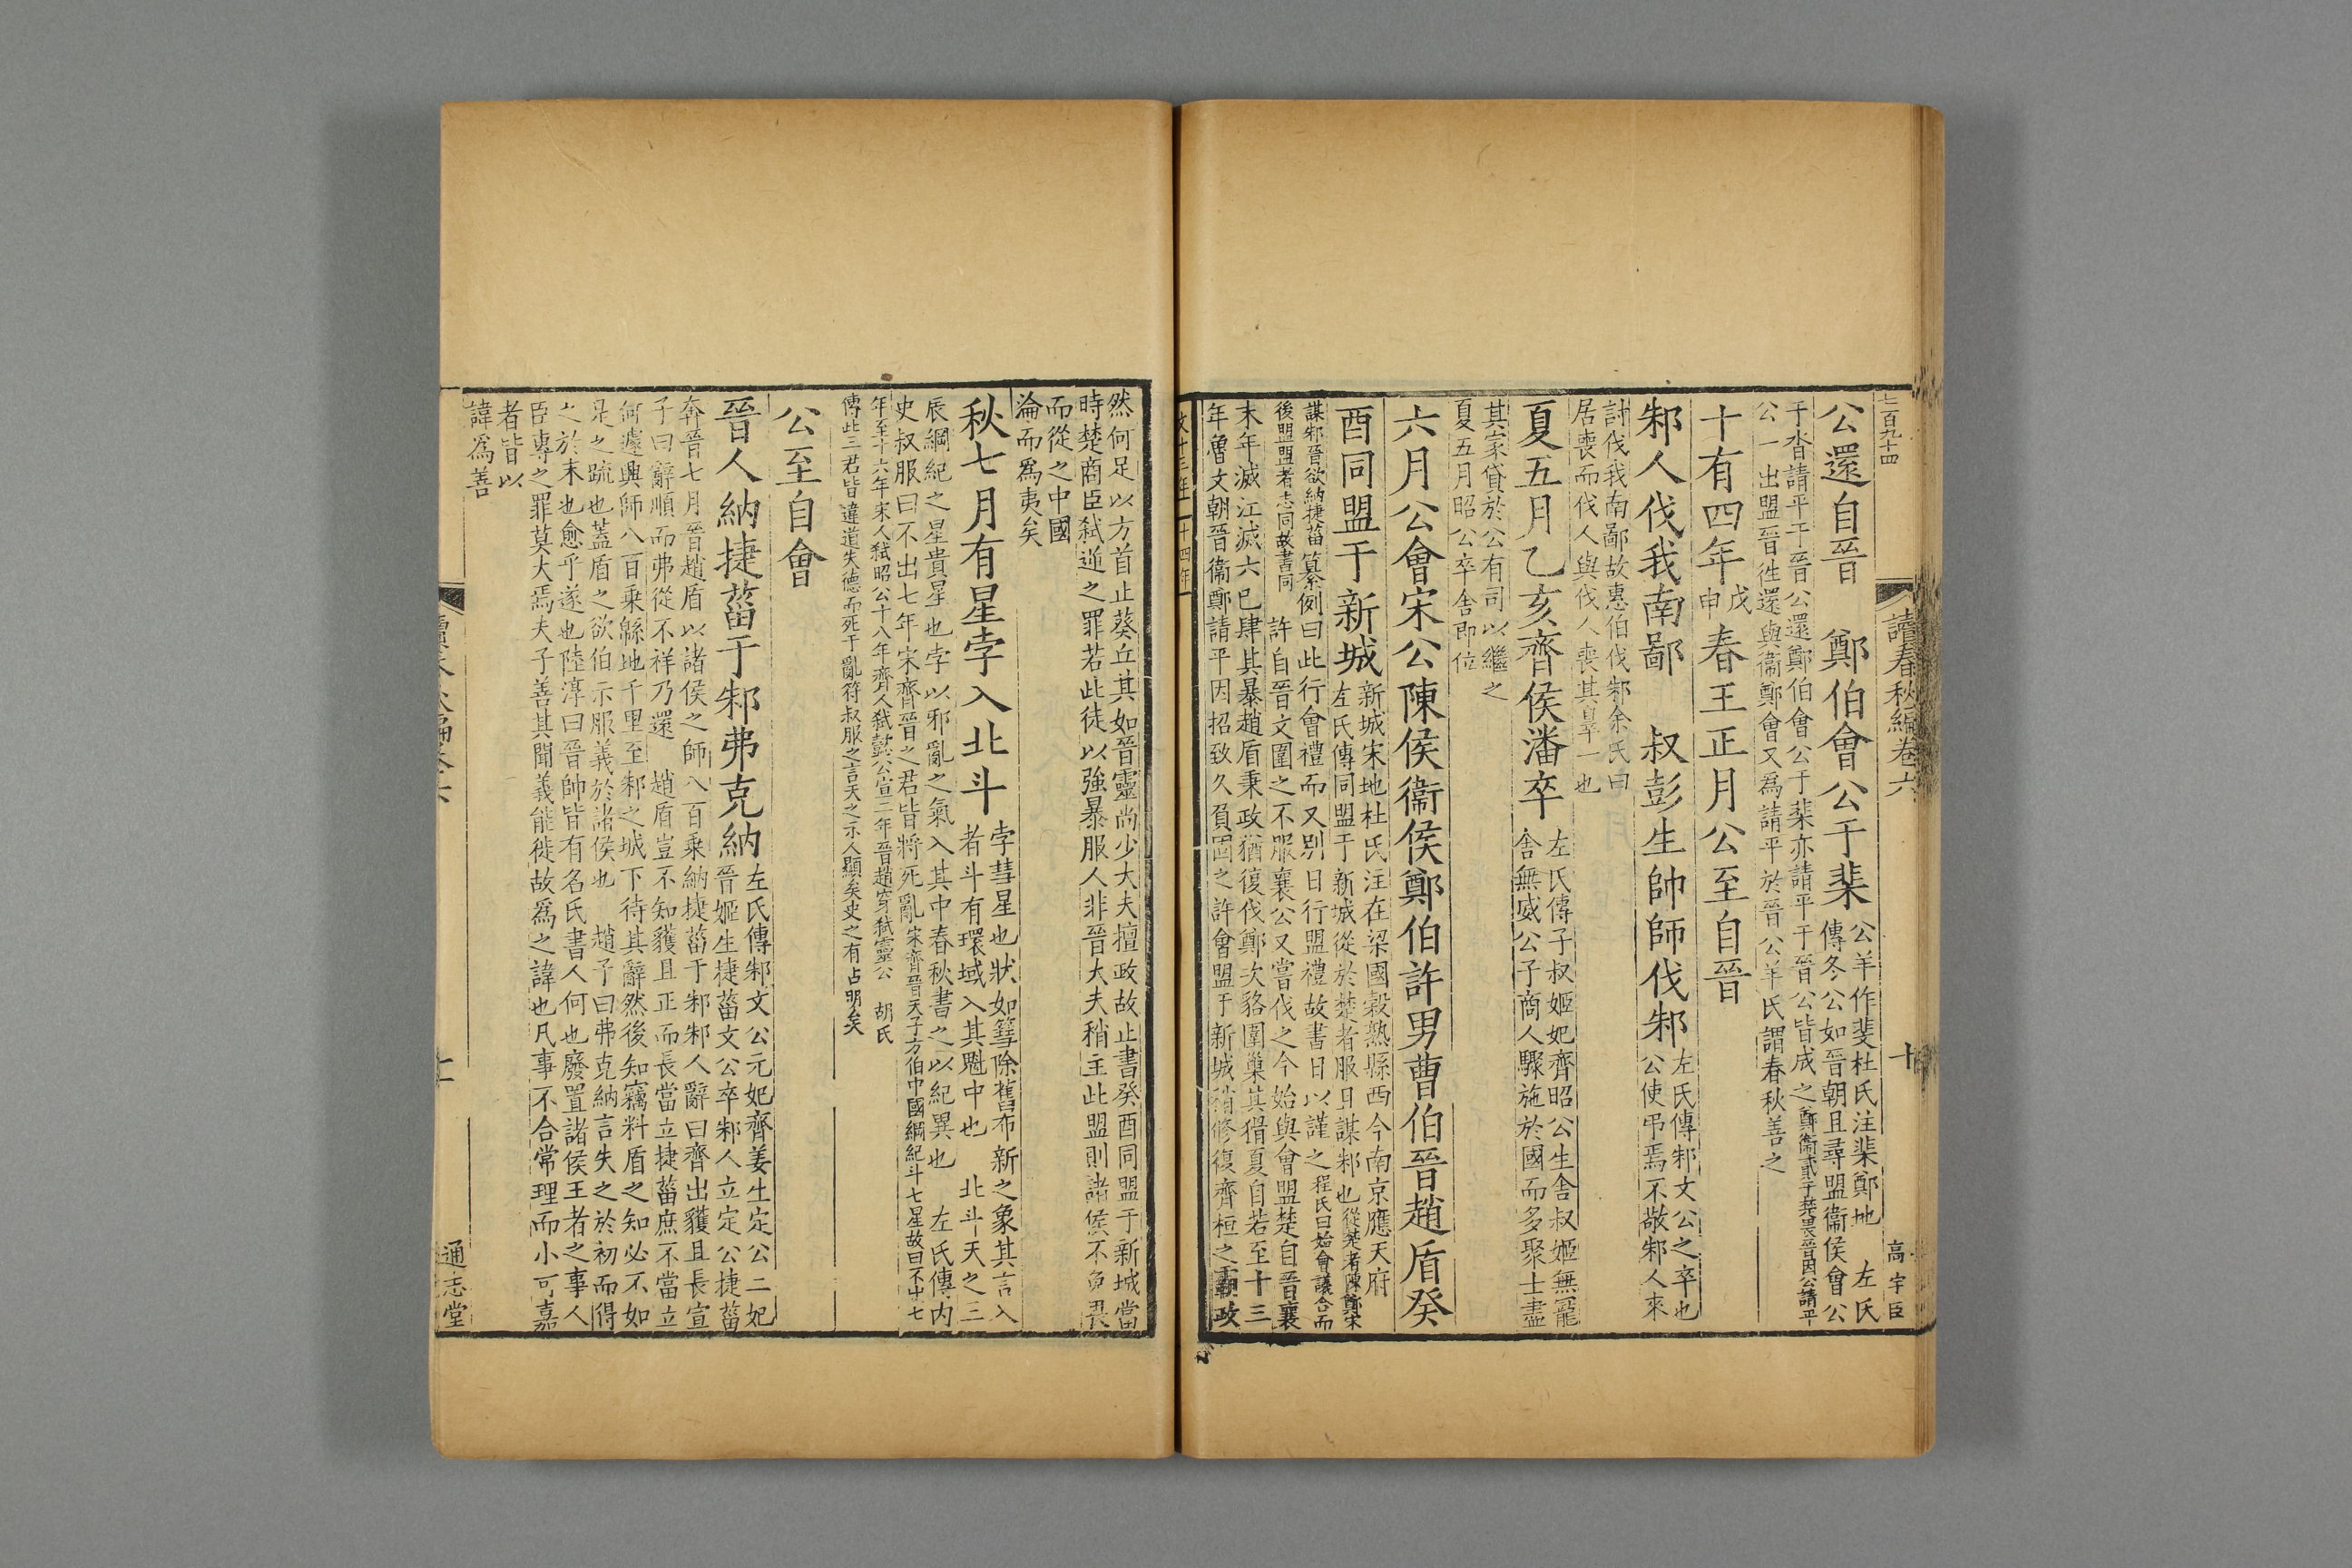 七百九十四
讀春秋編卷六
十
高宇臣
公還自晉　鄭伯會公于棐
公羊作斐杜氏注棐鄭地　左氏
傳冬公如晉朝且尋盟衞侯會公
于沓請平于晉公還鄭伯會公于棐亦請平于晉公皆成之鄭衞貳于楚畏晉因公請平
公一出盟晉徃還與衞鄭會又爲請平於晉公羊氏謂春秋善之
十有四年戊申春王正月公至自晉
邾人伐我南鄙　叔彭生帥師伐邾
左氏傳邾文公之卒也
公使弔焉不敬邾人來
討伐我南鄙故惠伯伐邾余氏曰
居喪而伐人與伐人喪其辠一也
夏五月乙亥齊侯潘卒
左氏傳子叔姬妃齊昭公生舍叔姬無寵
舍無威公子商人驟施於國而多聚士盡
其家貸於公有司以繼之
夏五月昭公卒舍即位
六月公會宋公陳侯衞侯鄭伯許男曹伯晉趙盾癸
酉同盟于新城
新城宋地杜氏注在梁國穀熟縣西今南京應天府
左氏傳同盟于新城從於楚者服且謀邾也從楚者陳鄭宋
謀邾晉欲納捷菑　纂例曰此行會禮而又別日行盟禮故書日以謹之程氏曰始會議合而
後盟盟者志同故書同　許自晉文圍之不服襄公又嘗伐之今始與會盟楚自晉襄
末年滅江滅六已肆其暴趙盾秉政猶復伐鄭次貉圍巢其猾夏自若至十三
年魯文朝晉衞鄭請平因招致久負固之許會盟于新城稍修復齊桓之霸政
文十三年　十四年
然何足以方首止葵丘其如晉靈尚少大夫擅政故止書癸酉同盟于新城當
時楚商臣弒逆之罪若此徒以強暴服人非晉大夫稍主此盟則諸侯不負畏
而從之中國
淪而爲夷矣
秋七月有星孛入北斗
孛彗星也狀如篲除舊布新之象其言入
者斗有環域入其魁中也　北斗天之三
辰綱紀之星貴星也孛以邪亂之氣入其中春秋書之以紀異也　左氏傳内
史叔服曰不出七年宋齊晉之君皆將死亂宋齊晉天子方伯中國綱紀斗七星故曰不出七
年至十六年宋人弒昭公十八年齊人弒懿公宣二年晉趙穿弒靈公　胡氏
傳此三君皆違道失德而死于亂符叔服之言天之示人顯矣史之有占明矣
公至自會
晉人納捷菑于邾弗克納
左氏傳邾文公元妃齊姜生定公二妃
晉姬生捷菑文公卒邾人立定公捷菑
奔晉七月晉趙盾以諸侯之師八百乘納捷菑于邾邾人辭曰齊出貜且長宣
子曰辭順而弗從不祥乃還　趙盾豈不知貜且正而長當立捷菑庶不當立
何遽興師八百乘緜地千里至邾之城下待其辭然後知竊料盾之知必不如
是之疏也蓋盾之欲伯示服義於諸侯也　趙子曰弗克納言失之於初而得
之於末也愈乎遂也陸淳曰晉帥皆有名氏書人何也廢置諸侯王者之事人
臣專之罪莫大焉夫子善其聞義能徙故爲之諱也凡事不合常理而小可嘉
者皆以
諱爲善
讀春秋編卷六
十一
通志堂